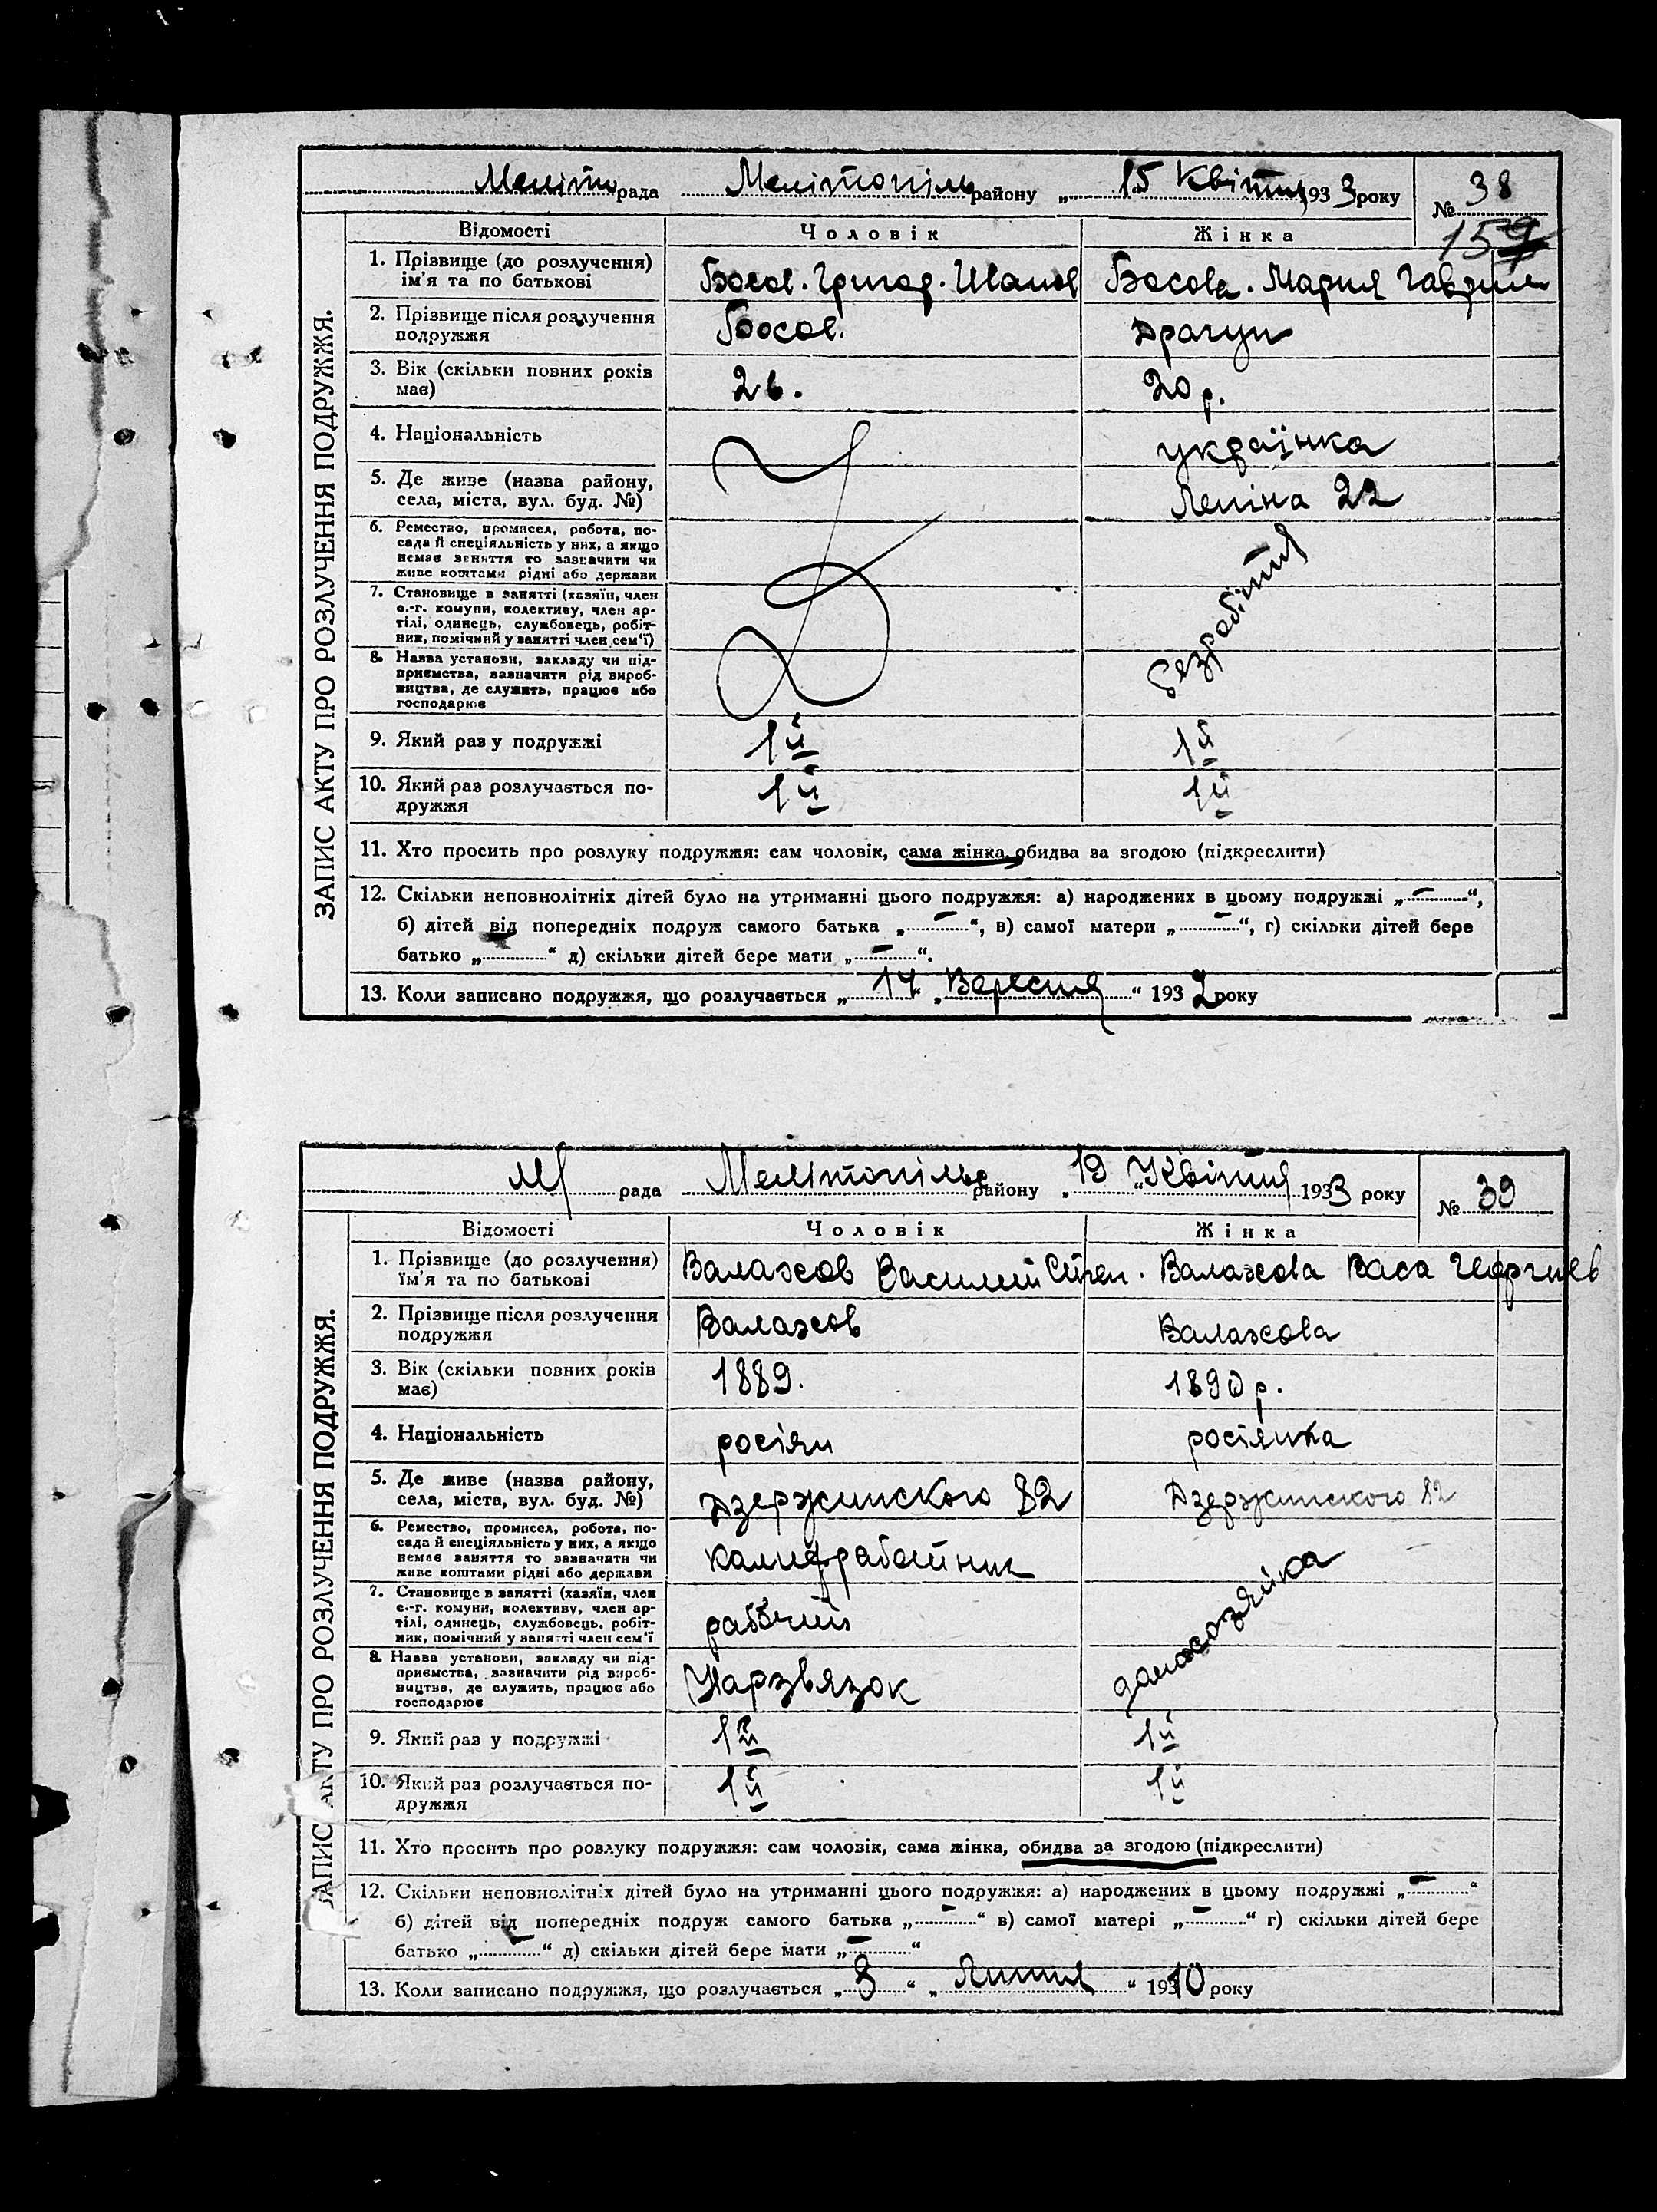 Меліто рада Мелітопіль району „ 15 Квітня 1933 року № 38
159
ЗАПИС АКТУ ПРО РОЗЛУЧЕННЯ ПОДРУЖЖЯ.
Відомості Чоловік Жінка
1. Прізвище (до розлучення) Босов. Григор. Иванов Босова. Мария Гаврил
ім'я та по батькові
2. Прізвище після розлучення Босов. Драгун
подружжя
3. Вік (скільки повних років 26. 20 р.
має)
4. Національність українка
5. Де живе (назва району, Леніна 22
села, міста, вул. буд. №)
6. Ремество, промисел, робота, по-
сада й спеціяльність у них, а якщо
немає заняття то зазначити чи
живе коштами рідні або держави
безробітня
7. Становище в занятті (хазяїн, член
с.-г. комуни, колективу, член ар-
тілі, одинець, службовець, робіт-
ник, помічний у занятті член сем'ї)
8. Назва установи, закладу чи під-
приємства, зазначити рід вироб-
ництва, де служить, працює або
господарює
9. Який раз у подружжі 1й 1й
10. Який раз розлучається по- 1й 1й
дружжя
11. Хто просить про розлуку подружжя: сам чоловік, сама жінка, обидва за згодою (підкреслити)
12. Скільки неповнолітніх дітей було на утриманні цього подружжя: а) народжених в цьому подружжі „ — “,
б) дітей від попередніх подруж самого батька „ — “, в) самої матери „ — “, г) скільки дітей бере
батько „ “ д) скільки дітей бере мати „ — “.
13. Коли записано подружжя, що розлучається „ 14 “ „ Вересня “ 1932 року
рада Мелітопільс району „ 19 „ Квітня 1933 року № 39
ЗАПИС АКТУ ПРО РОЗЛУЧЕННЯ ПОДРУЖЖЯ.
Відомості Чоловік Жінка
1. Прізвище (до розлучення) Валахов Василий Степ. Валахова Васа Георгиев
ім'я та по батькові
2. Прізвище після розлучення Валахов Валахова
подружжя
3. Вік (скільки повних років 1889. 1890 р.
має)
4. Національність росіян росіянка
5. Де живе (назва району, Дзержинского 82 Дзержинского 82
села, міста, вул. буд. №)
6. Ремество, промисел, робота, по-
сада й спеціяльність у них, а якщо
немає заняття то зазначити чи
живе коштами рідні або держави
домохозяйка
7. Становище в занятті (хазяїн, член
с.-г. комуни, колективу, член ар- рабочий
тілі, одинець, службовець, робіт-
ник, помічний у занятті член сем'ї
8. Назва установи, закладу чи під-
приємства, зазначити рід вироб- Нарзвязок
ництва, де служить, працює або
господарює
9. Який раз у подружжі 1й 1й
10. Який раз розлучається по- 1й 1й
дружжя
11. Хто просить про розлуку подружжя: сам чоловік, сама жінка, обидва за згодою (підкреслити)
12. Скільки неповнолітніх дітей було на утриманні цього подружжя: а) народжених в цьому подружжі „ — “
б) дітей від попередніх подруж самого батька „ — “ в) самої матері „ — “ г) скільки дітей бере
батько „ “ д) скільки дітей бере мати „ — “
13. Коли записано подружжя, що розлучається „ 8 “ „ Липня “ 1910 року